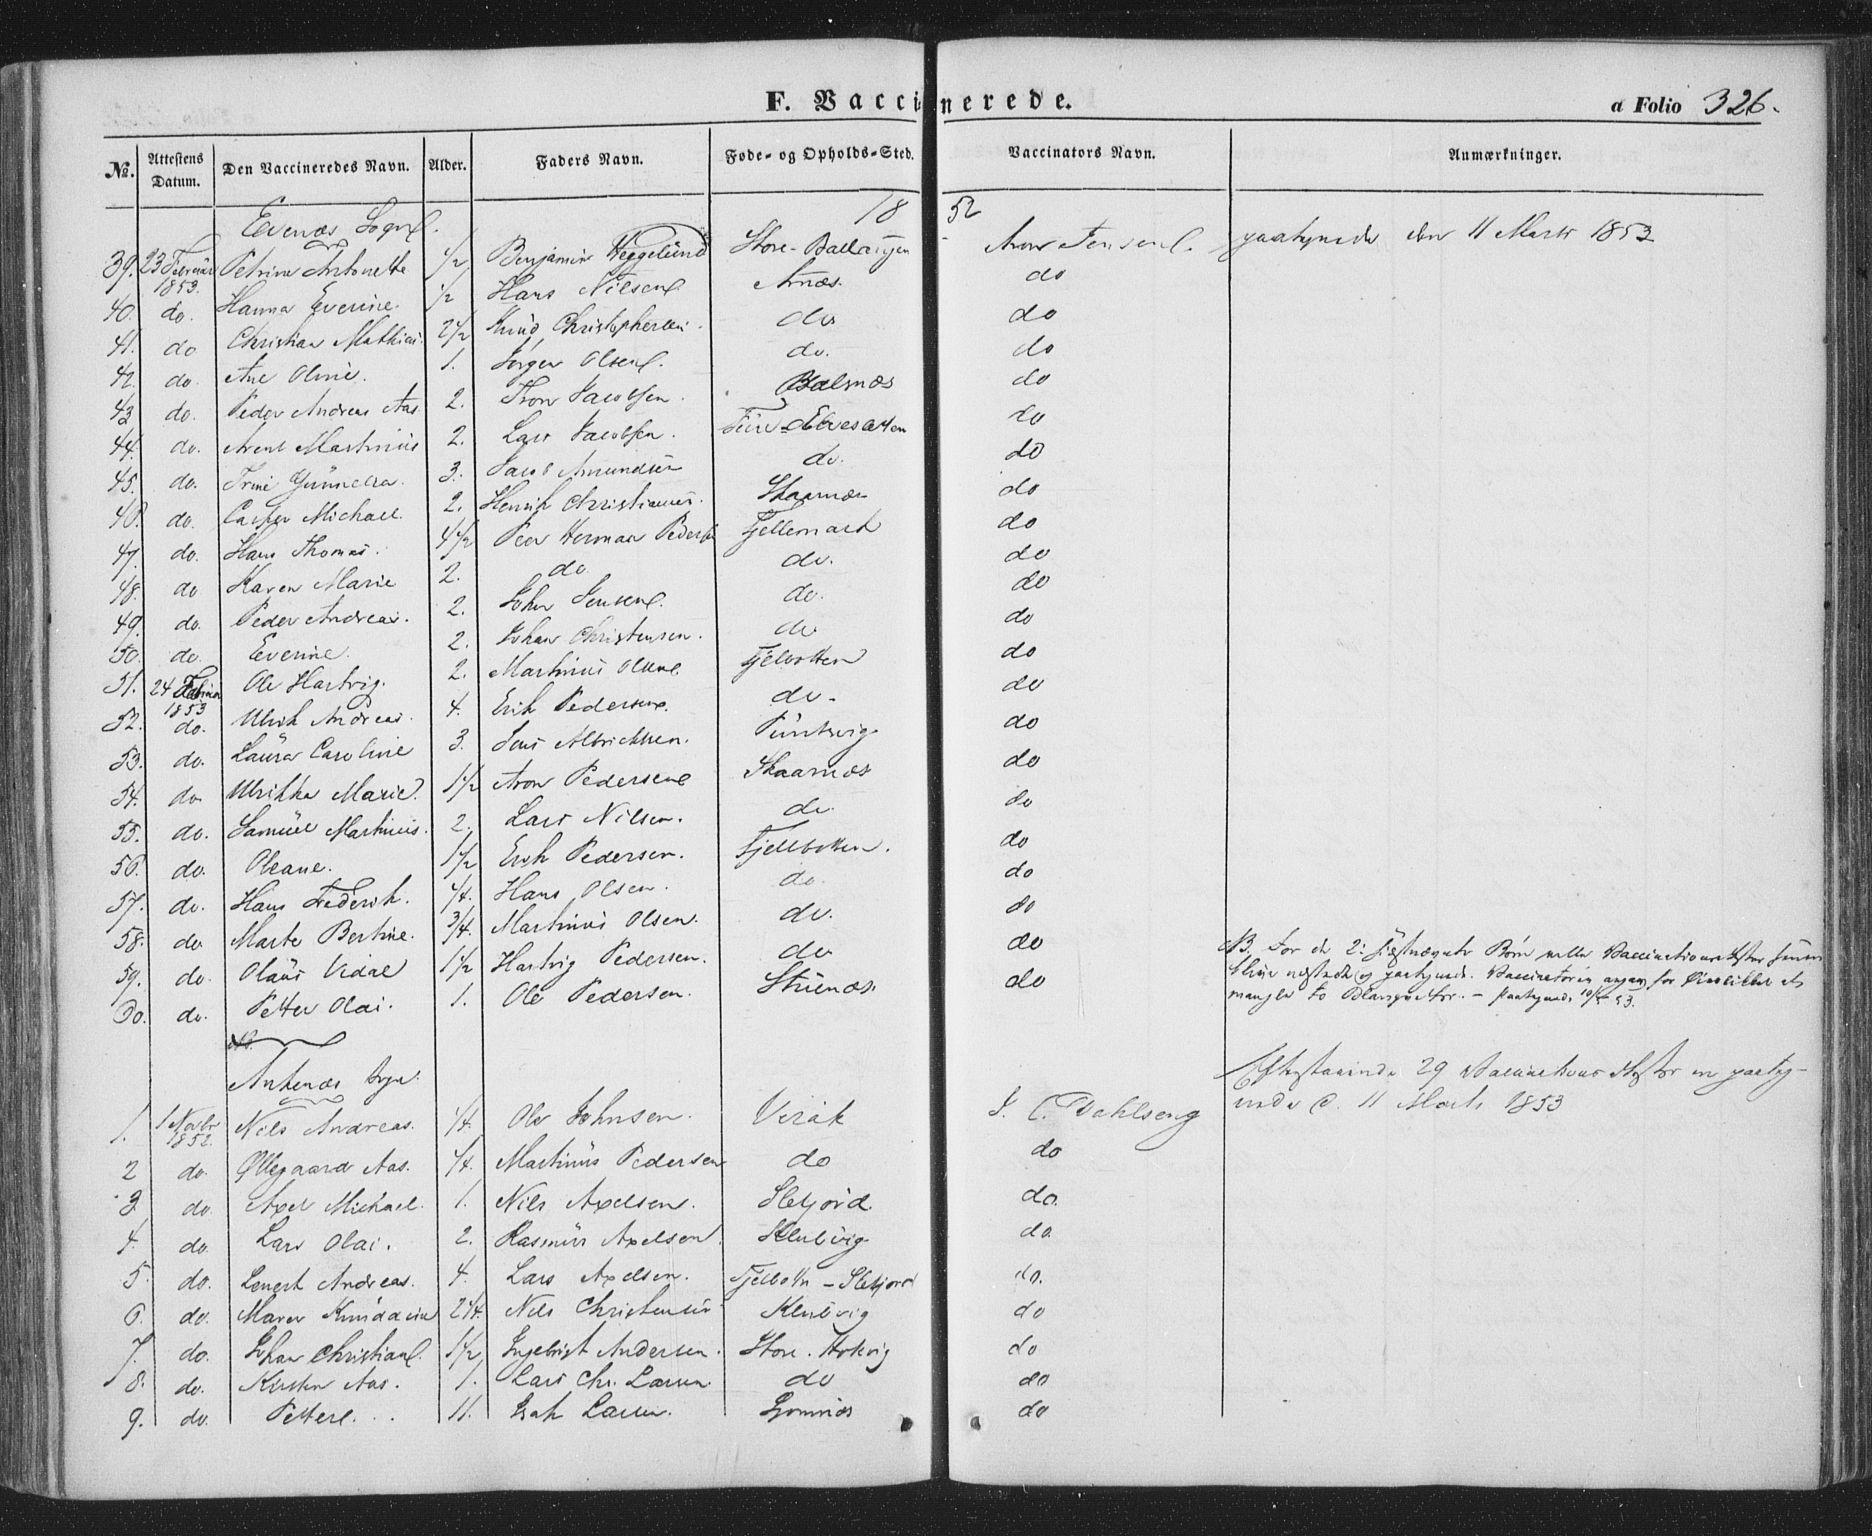 F. Vaccinerede. a Folio 326.
No. Attestens Datum. Den Vaccineredes Navn. Alder. Faders Navn. Føde- og Opholds-Sted. Vaccinators Navn. Anmærkninger.
1852
Evenæs Sogn.
39. 23 Februar 1853. Petrine Antonette 1/2 Benjamin Heggelund Store-Ballangen Aron Jensen. paategnede den 11 Marts 1853
40. do. Hanna Everine. 1/2 Hans Nilsen Arnæs. do
41. do Christian Mathias. 2 1/2 Knud Christophersen. do do
42. do. Ane Oline. 1. Jørgen Olsen. do. do
43 do. Peder Andreas Aas. 2. Tron Jacobsen. Balsnæs do
44. do. Arent Martinus 2. Lars Jacobsen. do
45. do. Trine Gunnelia. 3. Jacob Amundsen do. do
46. do. Casper Michael 2. Henrik Christiansen. Skaarnæs do
47. do. Hans Thomas. 4 1/2 Peer Herman Peders. Fjellemark do
48. do Karen Marie 2. do do. do
49. do. Peder Andreas. 2. Johan Jensen. do. do
50. do. Everine. 2. Johan Christensen. do do
51. 24 Februar 1853 Ole Hartvig. 2. Martinus Olsen. Fjelbotten do
52. do. Ulrik Andreas. 4. Erik Pedersen. do. do
53. do. Laura Caroline 3. Jens Albrichtsen. do
54. do Ulrikka Marie. 1 1/2 Aron Pedersen Skaarnæs do
55. do. Samuel Martinus. 2. Lars Nilsen. do. do
56. do. Oleane. 1 1/2 Erik Pedersen. Fjellbotten. do
57. do. Hans Frederik. 1/4. Hans Olsen. do. do
58. do Marte Bertine. 3/4. Martinus Olsen. do. do
59. do. Olaus Vidal 1 1/2 Hartvig Pedersen. do do
60. do. Petter Olai. 1. Ole Pedersen. Stunæs. do
NB. For de 2
paategnede 10/5 53.
Ankenæs Sogn.
29 Vaccinations Attester
11 Marts 1853
1. 1 Novbr 1852. Nils Andreas. 1/4. Ole Johnsen. Virak J. C. Dahlseng
2 do. Øllegaard Aas. 1/4. Martinus Pedersen do do
3. do. Axel Michael. 1. Nils Axelsen. Sletjord do.
4. do. Lars Olai. 2. Rasmus Axelsen. Klubvig do.
5. do. Lenert Andreas. 4. Lars Axelsen. Fjelbotn - Sletjord do.
6. do. Maren 2 1/4. Nils Christensen Klubvig do
7. do. Johan Christian. 1 1/2 Ingebrigt Andersen. Store. Hokvig do
8. do. Kirsten Aas. 1. Lars Chr. Larsen. do do
9. do. Petter. 11. Isak Larsen. do